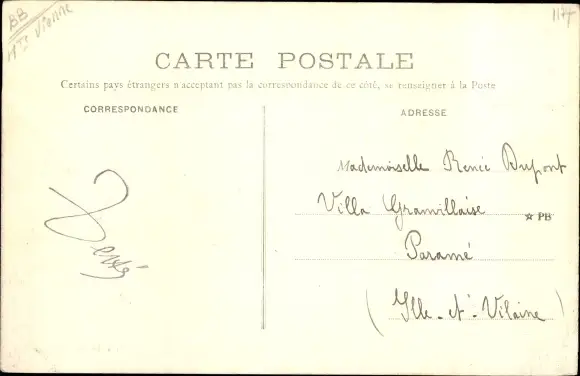 BB
Hte Vienne
CARTE POSTALE
Certains pays étrangers n'acceptant pas la correspondance de ce côté, se renseigner à la Poste
CORRESPONDANCE
ADRESSE
Mademoiselle Renée Dupont
Villa Gramillaise
☆ PB
Paramé
(Ille-et-Vilaine)